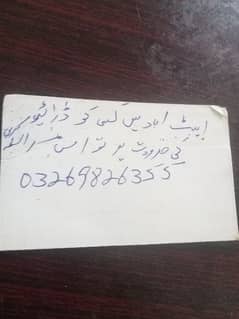 ایبٹ آباد میں کسی کو ڈرائیور
کی ضرورت ہو تو اس نمبر رابطہ
03269826355